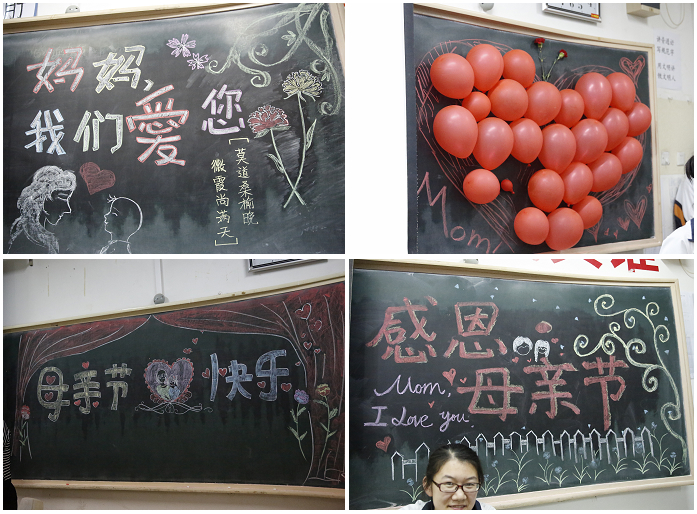 妈妈,
我们爱您
[莫道桑榆晚
微霞尚满天]
Mom!
母亲节 快乐
感恩
母亲节
Mom,
I Love you.